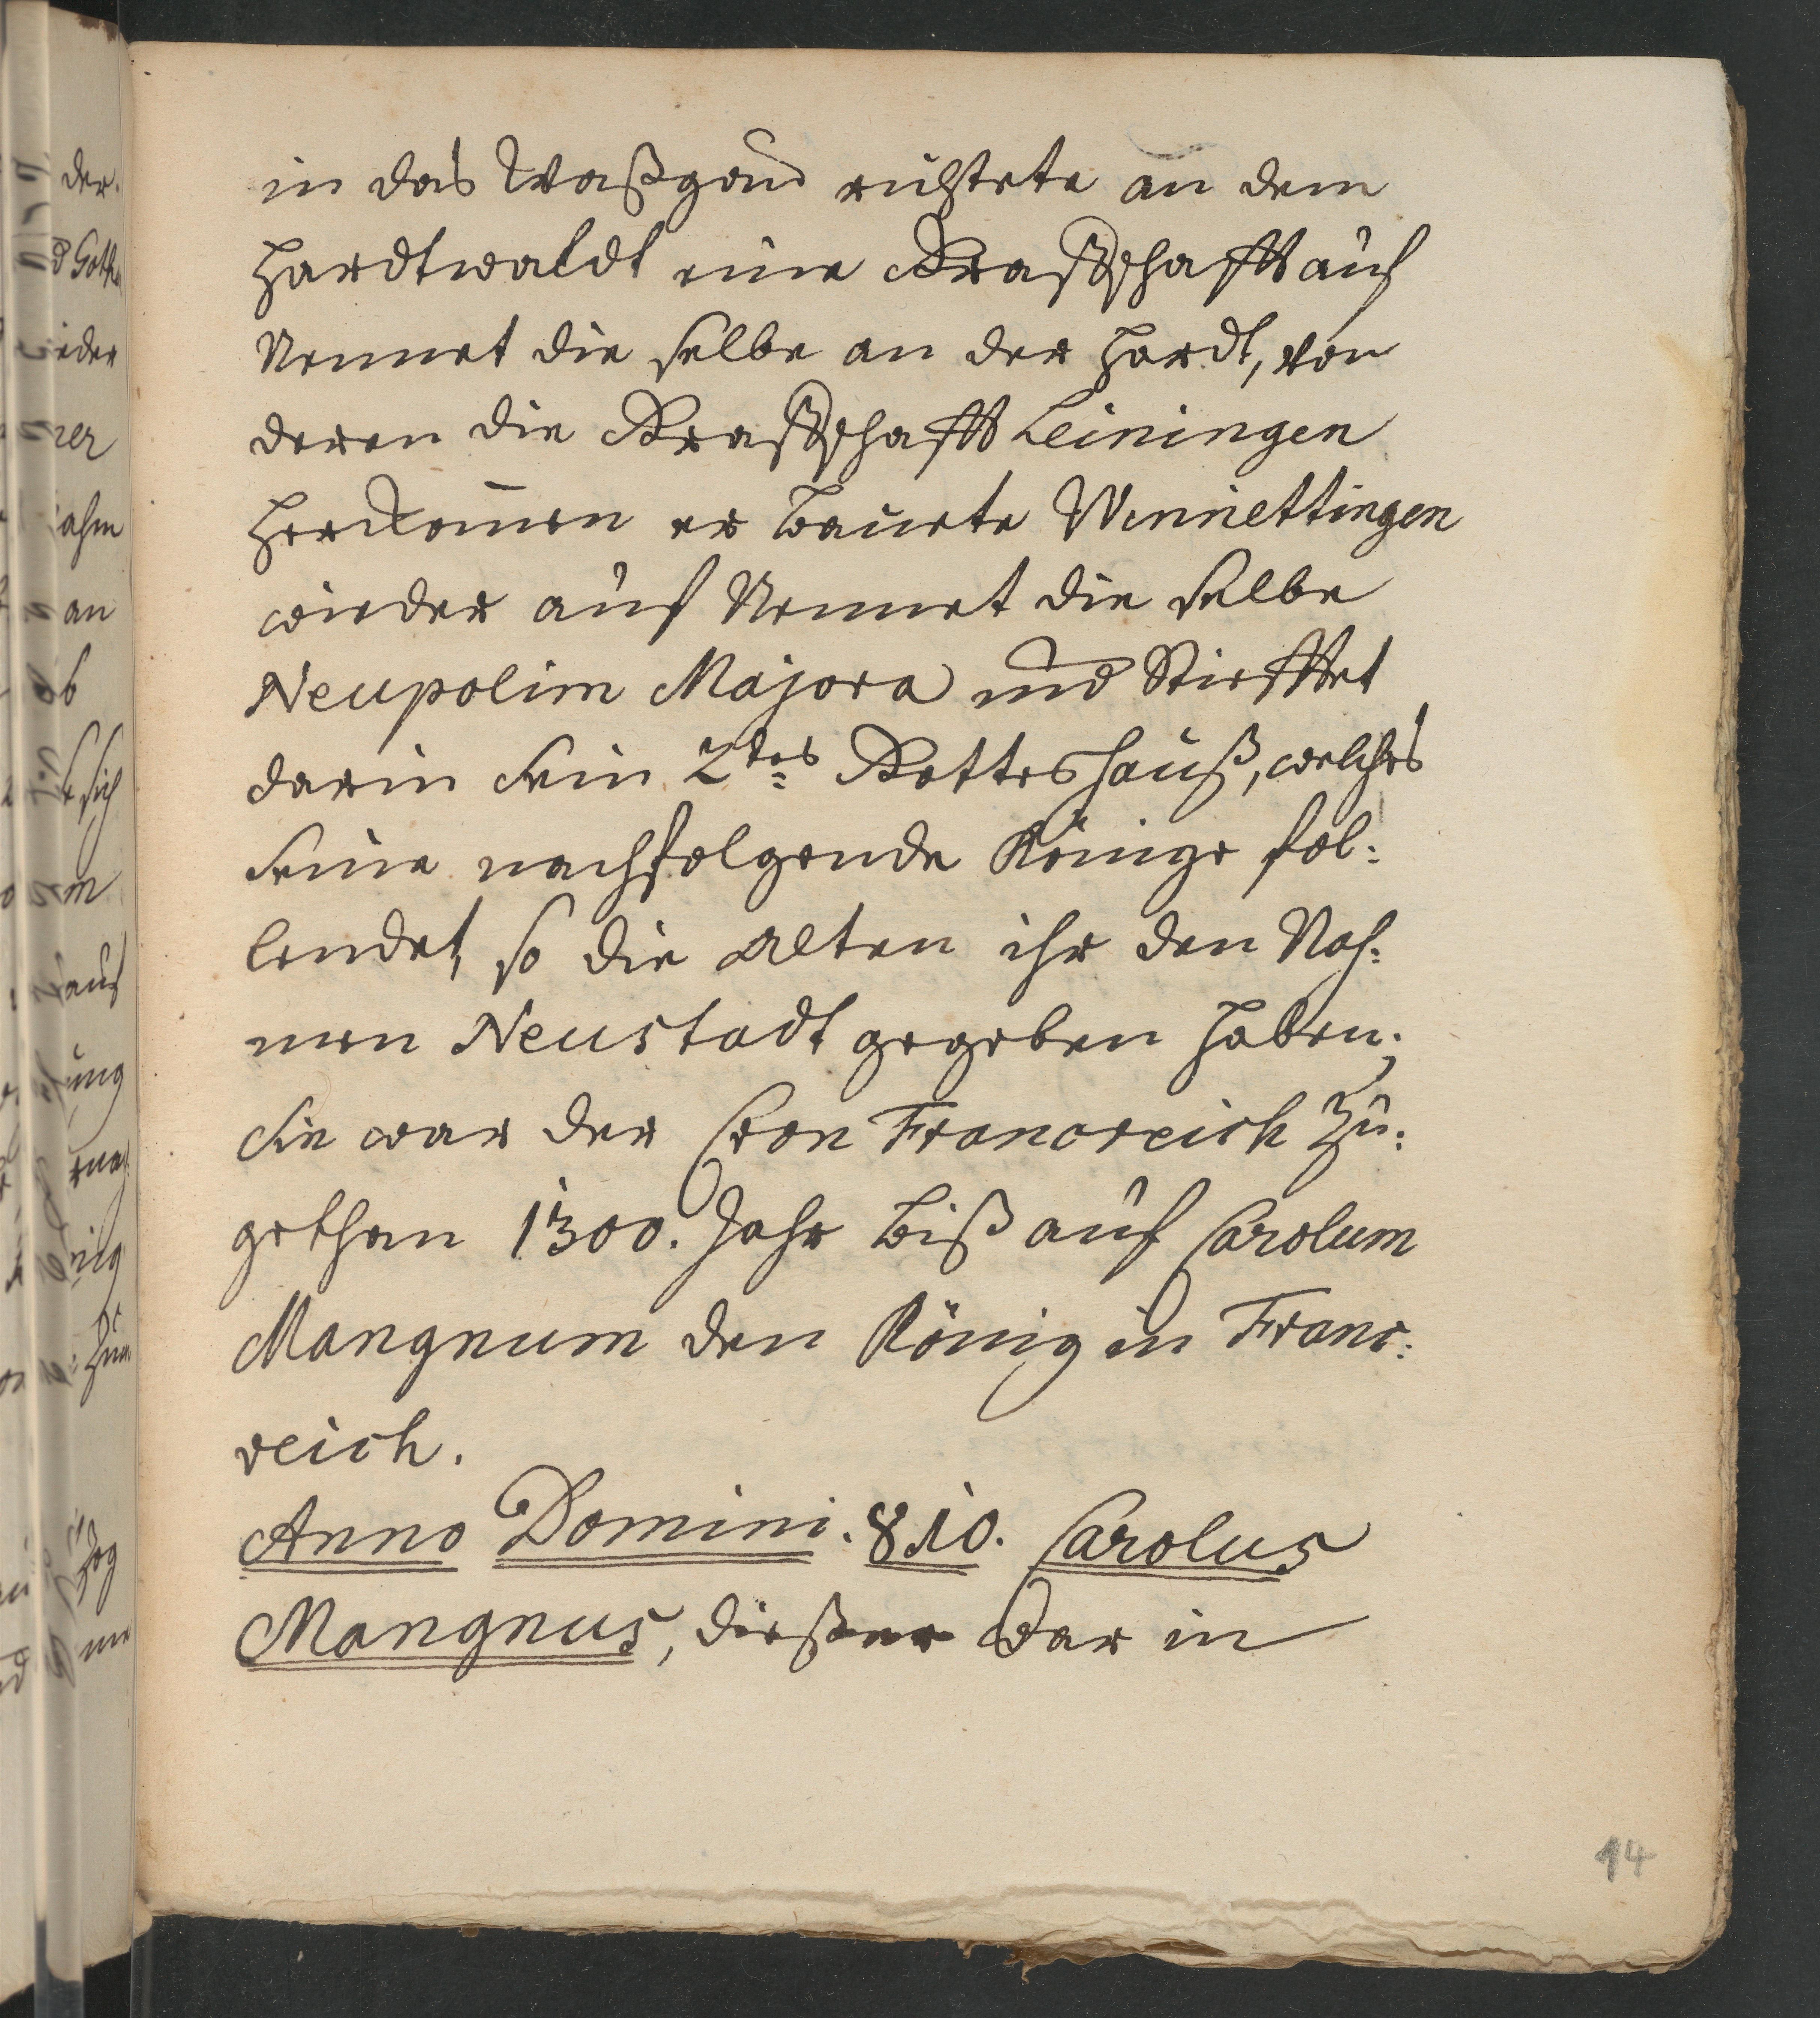 in das Waßgau richtete an dem
Hardtwaldt eine Graffschafft auch
Nennet die selbe an der Hardt, von
deren die Graffschafft Leiningen
Herkom̄en er bauete Winniettingen
wieder auf Nennet die selbe
Neupolim Majora und Stiefftet
darin Sein 2tes Gottes Hauß, welches
Seine nachfolgende Könige fol:
lendet, so die Alten ihr den Nah:
men Neustadt gegeben Haben.
Sie war der Cron Francreich zu:
gethan 1300. Jahr biß auf Carolum
Mangnum den König in Franc:
reich.
Anno Domini. 810. Carolus
Mangnus, dießer War in
14